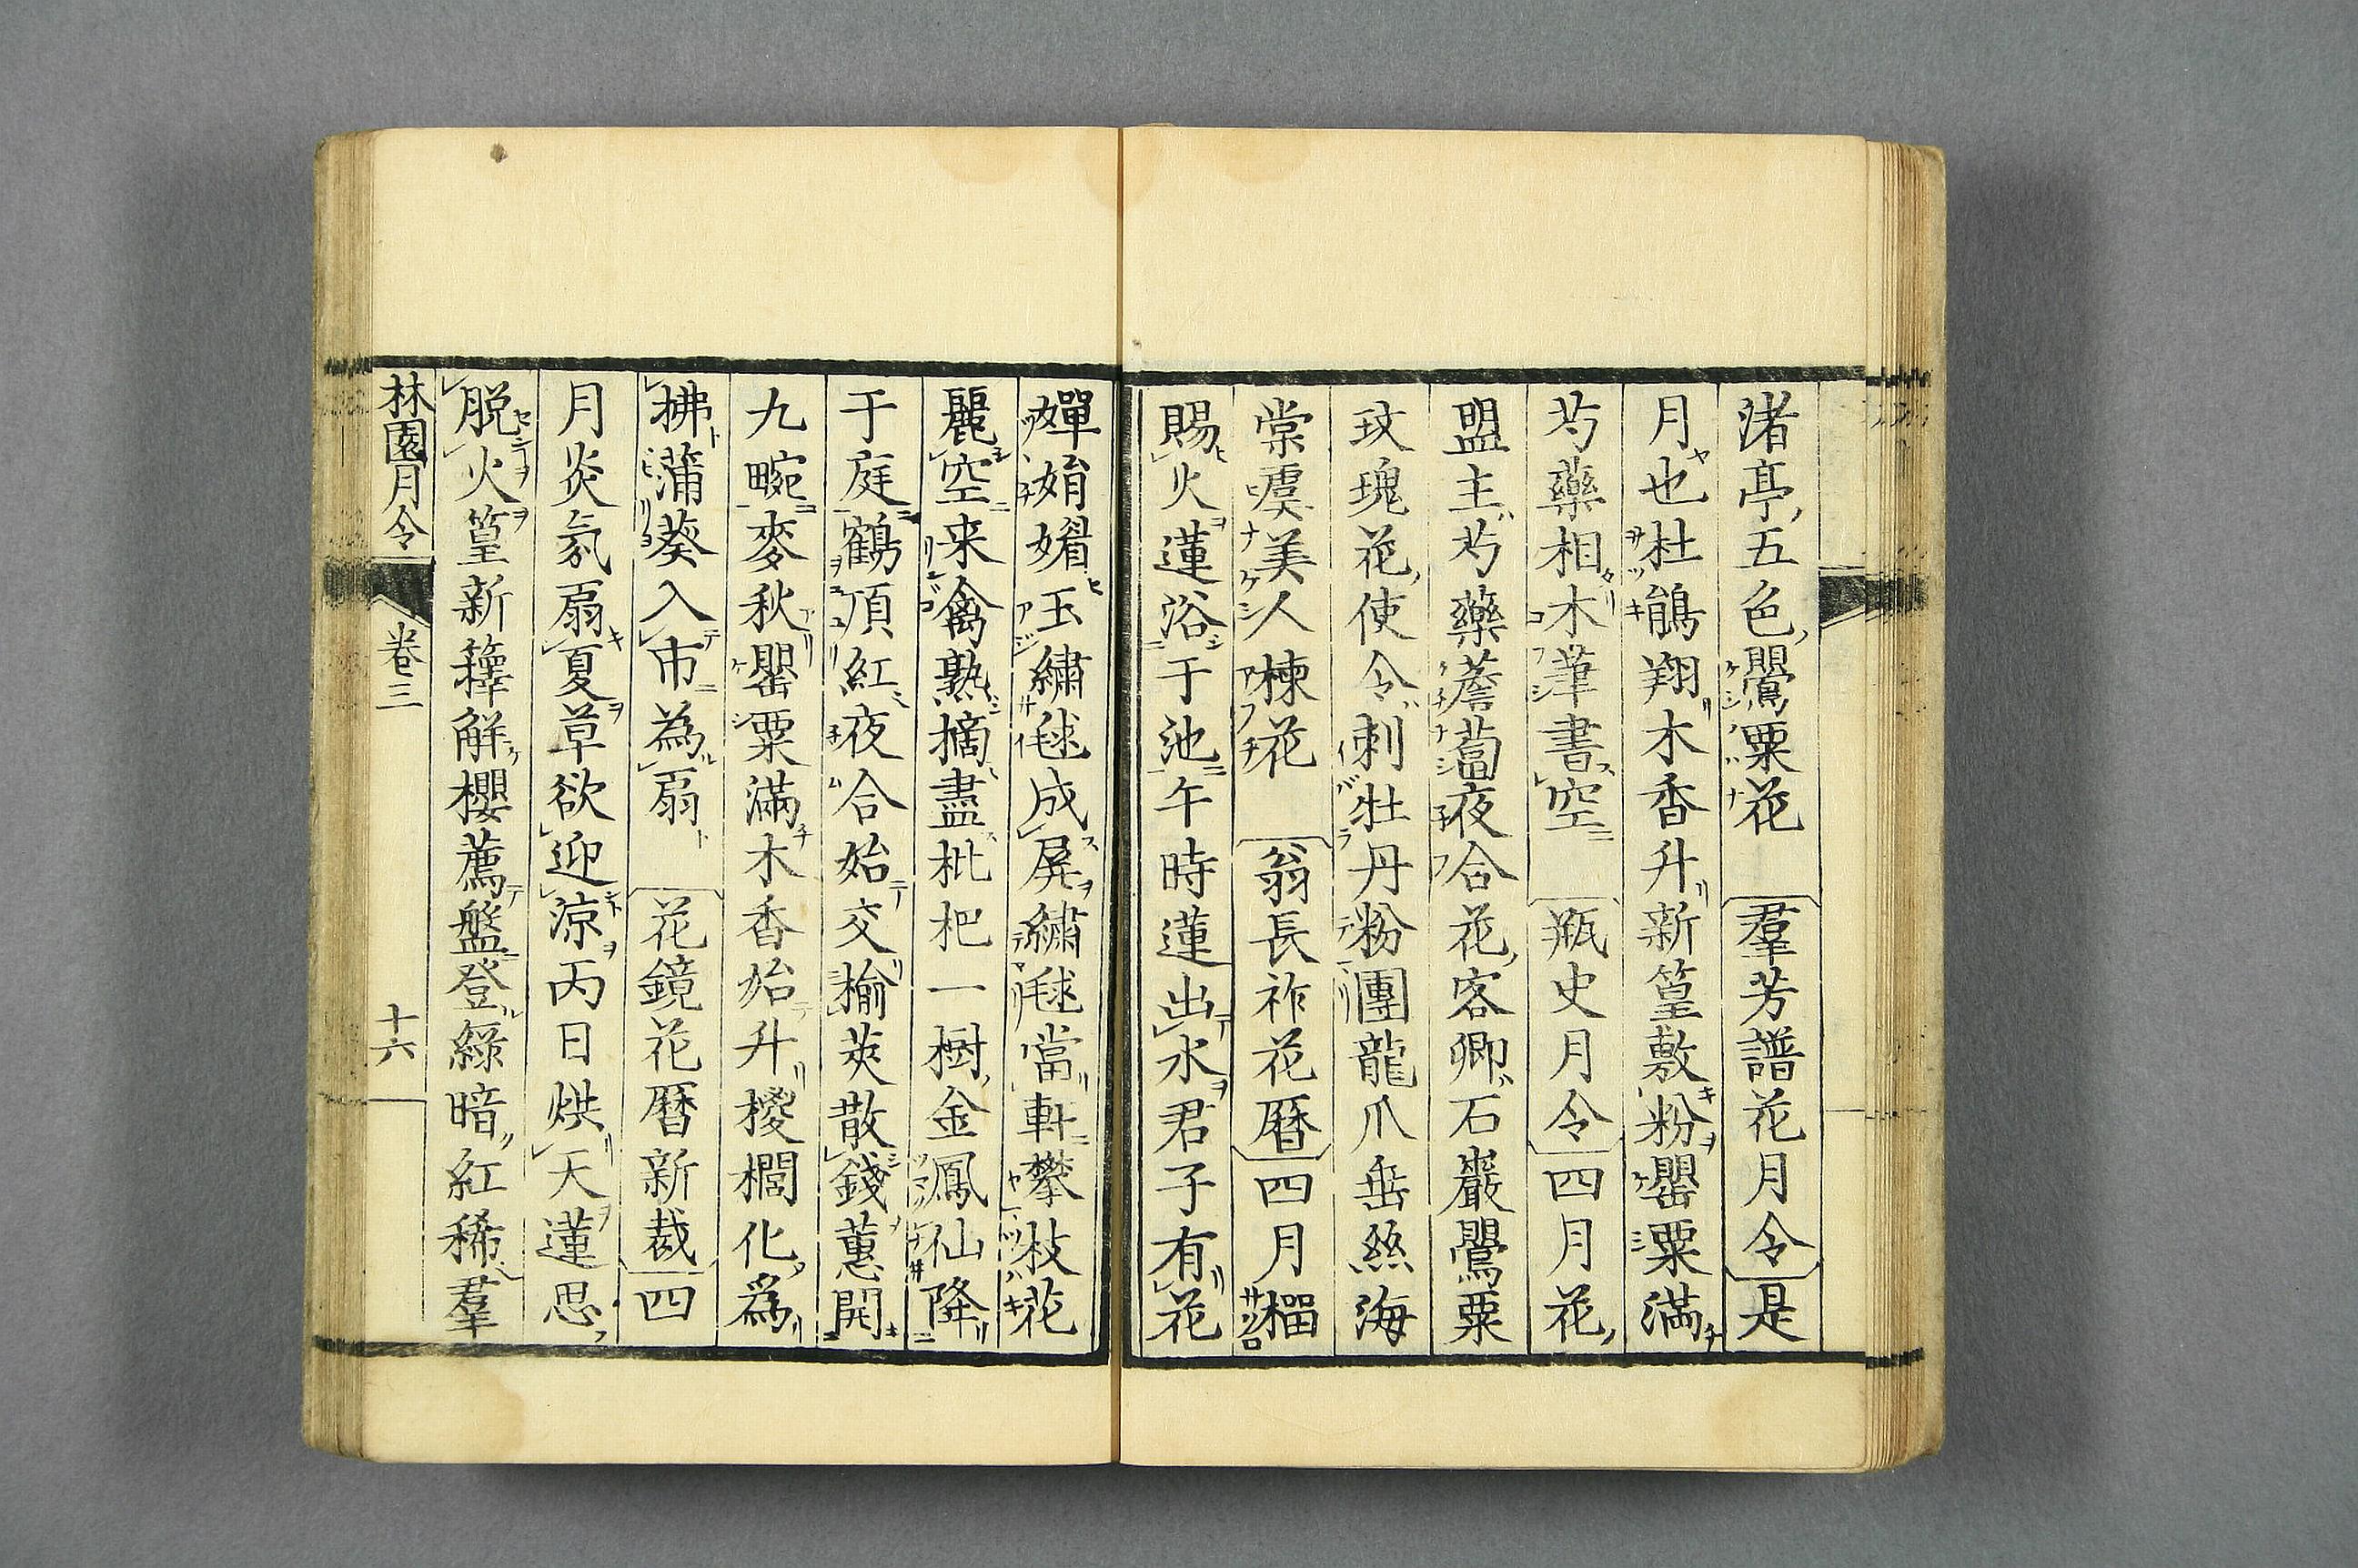 渚亭五色罌粟花 羣芳譜花月令 是
月也杜鵑翔木香升新篁敷粉罌粟滿
芍藥相木筆書空 瓶史月令 四月花
盟主芍藥薝蔔夜合花客卿石巖罌粟
玫瑰花使令刺牡丹粉團龍爪垂絲海
棠虞美人楝花 翁長祚花暦 四月榴
賜火蓮浴于池午時蓮出水君子有花
嬋娟媚玉繡毬成屏繡毬當軒攀枝花
麗空来禽熟摘盡枇杷一樹金鳳仙降
于庭鶴頂紅夜合始交榆莢散錢蕙開
九畹麥秋罌粟滿木香始升椶櫚化為
拂蒲葵入市為扇 花鏡花暦新裁 四
月炎氛扇夏草欲迎涼丙日烘天蓮思
脱火篁新籜解櫻薦盤登綠暗紅稀羣
林園月令 卷三 十六